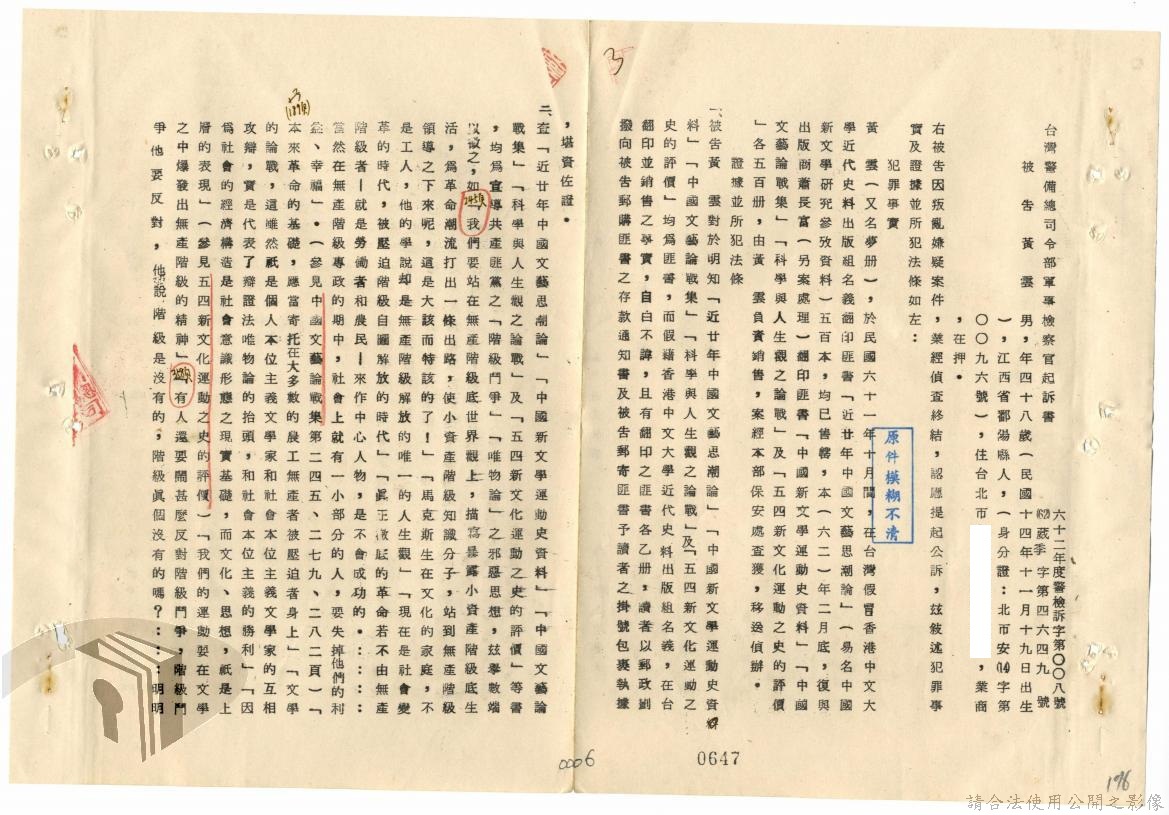 3
台灣警備總司令部軍事檢察官起訴書
六十二年度警檢訴字第〇〇八號
蔵季字第四六四九號
被告黃雲
男，年四十八歲（民國十四年十一月十九日出生
），江西省鄱陽縣人，（身分證：北市安⒁字第
〇〇九六號），住台北市，業商
，在押。
右被告因叛亂嫌疑案件，業經偵查終結，認應提起公訴，玆敘述犯罪事
實及證據並所犯法條如左：
犯罪事實
黃雲（又名夢册），於民國六十一年十月間，在台灣假冒香港中文大
學近代史料出版組名義翻印匪書「近廿年中國文藝思潮論」（易名中國
新文學研究參攷資料）五百本，均已售轄，本（六二）年二月底，復與
出版商蕭長富（另案處理）翻印匪書「中國新文學運動史資料」「中國
文藝論戰集」「科學與人生觀之論戰」及「五四新文化運動之史的評價
」各五百册，由黃雲負責銷售，案經本部保安處查獲，移送偵辦。
證據並所犯法條
一、被告黃雲對於明知「近廿年中國文藝思潮論」「中國新文學運動史資
料」「中國文藝論戰集」「科學與人生觀之論戰」及「五四新文化運動之
史的評價」均爲匪書，而假藉香港中文大學近代史料出版組名義，在台
翻印並銷售之事實，自白不諱，且有翻印之匪書各乙册，讀者以郵政劃
撥向被告郵購匪書之存款通知書及被告郵寄匪書予讀者之掛號包裹執據
，堪資佐證。
二、查「近廿年中國文藝思潮論」「中國新文學運動史資料」「中國文藝論
戰集」「科學與人生觀之論戰」及「五四新文化運動之史的評價」等書
，均爲宣導共產匪黨之「階級鬥爭」「唯物論」之邪惡思想，玆舉數端
以徵之，如「我們要站在無產階級底世界觀上，描寫暴露小資產階級底生
活，爲革命潮流打出一條出路，使小資產階級知識分子，站到無產階級
領導之下來呢，這是大該而特該的了！「馬克斯生在文化的家庭，不
是工人，他的學說却是無產階級解放的唯一的人生觀」「現在是社會變
革的時代，被壓迫階級自圖解放的時代」「眞正徹底的革命若不由無產
階級者－就是勞働者和農民－來作中心人物，是不會成功的。：：：：
當然在無產階級專政的期中，社會上就有一小部分的人，要失掉他們的利
益、幸福」。（參見中國文藝論戰集第二四五、二七九、二八二頁）「
本來革命的基礎，應當寄托在大多數的農工無產者被壓迫者身上」「文學
的論戰，這雖然祇是個人本位主義文學家和社會本位主義文學家的互相
攻辯，實是代表了辯證法唯物論的抬頭，和社會本位主義的勝利」「因
爲社會的經濟構造是社會意識形態之現實基礎，而文化、思想，祇是上
層的表現」（參見五四新文化運動之史的評價）「我們的運動要在文學
之中爆發出無產階級的精神」「有人還要鬧甚麼反對階級鬥爭，階級鬥
爭他要反對，他說階級是沒有的，階級眞個沒有的嗎？：：：明明
原件模糊不清
0006
0647
196
請合法使用公開之影像